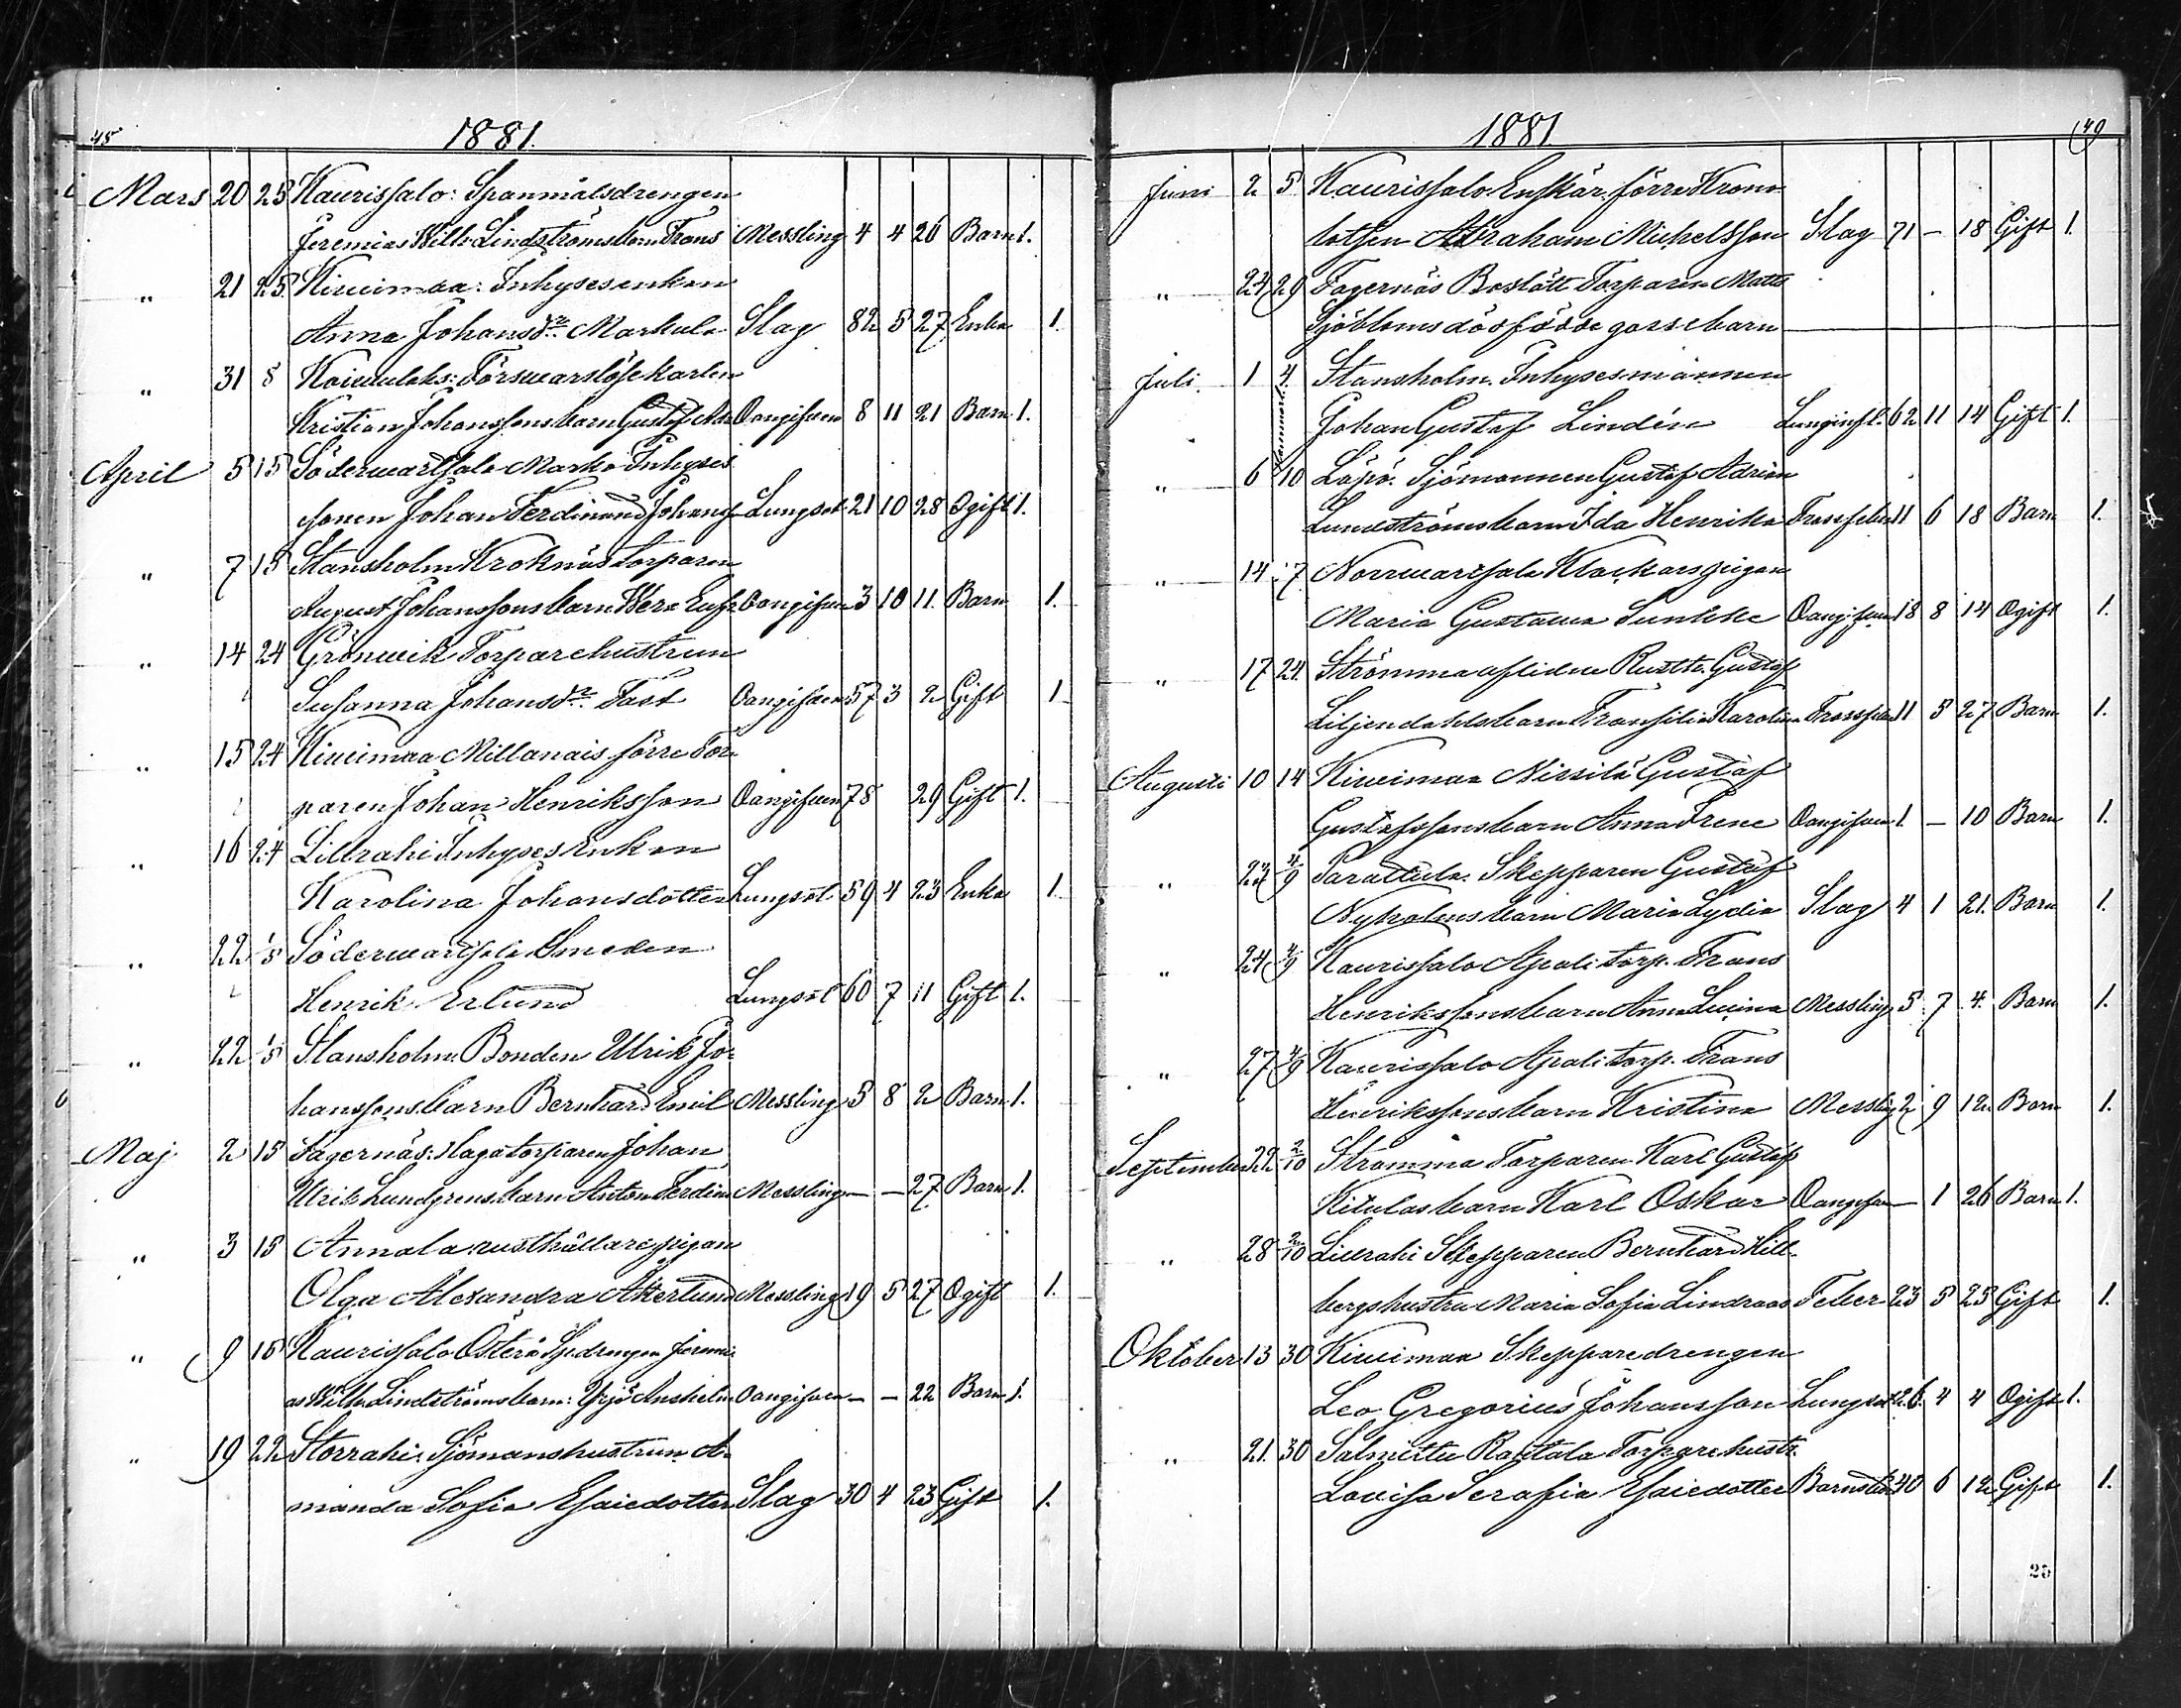 48 1881.
Mars 20 25 Kaurissalo: Spanmålsdrengen
Jeremias Wilh. Lindströms barn Frans Messling 4 4 26 Barn 1.
" 21 25 Kiwimaa: Inhysesenkan
Anna Johansdr Markula Slag 82 5 27 Enka 1.
" 31 8 Koiwulaks: Förswarslöse karlen
Kristian Johanssons barn Gustaf Oangifwen 8 11 21 Barn 1.
April 5 15 Söderwartsala Inhyses
sonen Johan Ferdinand Johans Lungsot 21 10 28 Ogift 1.
" 7 15 Stansholm Kroknäs Torparen
August Johanssons barn Oangifwen 3 10 11 Barn 1.
" 14 24 Grönwik Torparehustrun
Susanna Johansdr Fast Oangifwen 57 3 2 Gift 1
" 15 24 Kiwimaa Millanais förre Tor-
paren Johan Henriksson Oangifwen 78 29 Gift 1.
" 16 24 Lillrahi Inhyses Enkan
Karolina Johansdotter Lungsot 59 4 23 Enka 1
" 22 1/5 Söderwartsala Smeden
Henrik Erlund Lungsot 60 7 11 Gift 1.
" 22 1/5 Stansholm Bonden Ulrik Jo-
hanssons barn Bernhard Emil Messling 5 8 2 Barn 1.
Maj 2 15 Fagernäs: Haga torparen Johan
Ulrik Lundgrens barn Anton Ferdin Messling — — 27 Barn 1.
" 3 15 Annala rusthållarepigan
Olga Alexandra Åkerlund Messling 19 5 27 Ogift 1.
" 9 15 Kaurissalo Österå Spdrengen Jeremi-
as Wilh. Lindströms barn: Yrjö Anshelm Oangifwen — — 22 Barn 1.
" 19 22 Storrahi: Sjömanshustrun A-
manda Sofia Esaiedotter Slag 30 4 23 Gift 1.
1881 49
Juni 2 5 Kaurissalo Enskär förre Krono
lotsen Abraham Michelsson Slag 71 — 18 Gift 1.
" 24 29 Fagernäs Boslätt Torparen Matts
Sjöbloms dödfödde gossebarn
Juli 1 4. Stansholm. Inhysesmannen
Johan Gustaf Lindén Lunginfl. 62 11 14 Gift 1.
" 6 10 Löpö. Sjömannen Gustaf Adrian
Lundströms barn Ida Henrika 11 6 18 Barn 1.
" 14 17 Norrwartsala Klockarspigan
Maria Gustawa Oangifwen 18 8 14 Ogift 1.
" 17 24. Strömma aflidne Rustth. Gustaf
Liljendahls barn Karolina 11 5 27 Barn 1.
Augusti 10 14 Kiwimaa Nissilä Gustaf
Gustafssons barn Anna Irene Oangifwen 1. — 10 Barn 1.
" 23 4/9 Parattula. Skepparen Gustaf
Nyholms barn Maria Lydia Slag 4 1 21. Barn 1.
" 24 4/9 Kaurissalo Apali torp. Frans
Henrikssons barn Anna Messling 5 7 4. Barn 1.
" 27 4/9 Kaurissalo Apali torp. Frans
Henrikssons barn Kristina Messling 2 9 12 Barn 1.
September 22 2/10 Strömma Torparen Karl Gustaf
Kitulas barn Karl Oskar Oangifwen — 1 26 Barn 1.
" 28 2/10 Lillrahi Skepparen Bernhard Hill-
bergs hustru Maria Sofia Lindroos Feber 23 5 25 Gift 1.
Oktober 13 30 Kiwimaa Skepparedrengen
Leo Gregorius Johansson Lungsot 26. 4 4 Ogift 1.
" 21. 30 Salmittu Torparehustr.
Lovisa Serafia Esaiedotter 40 6 12 Gift 1.
25